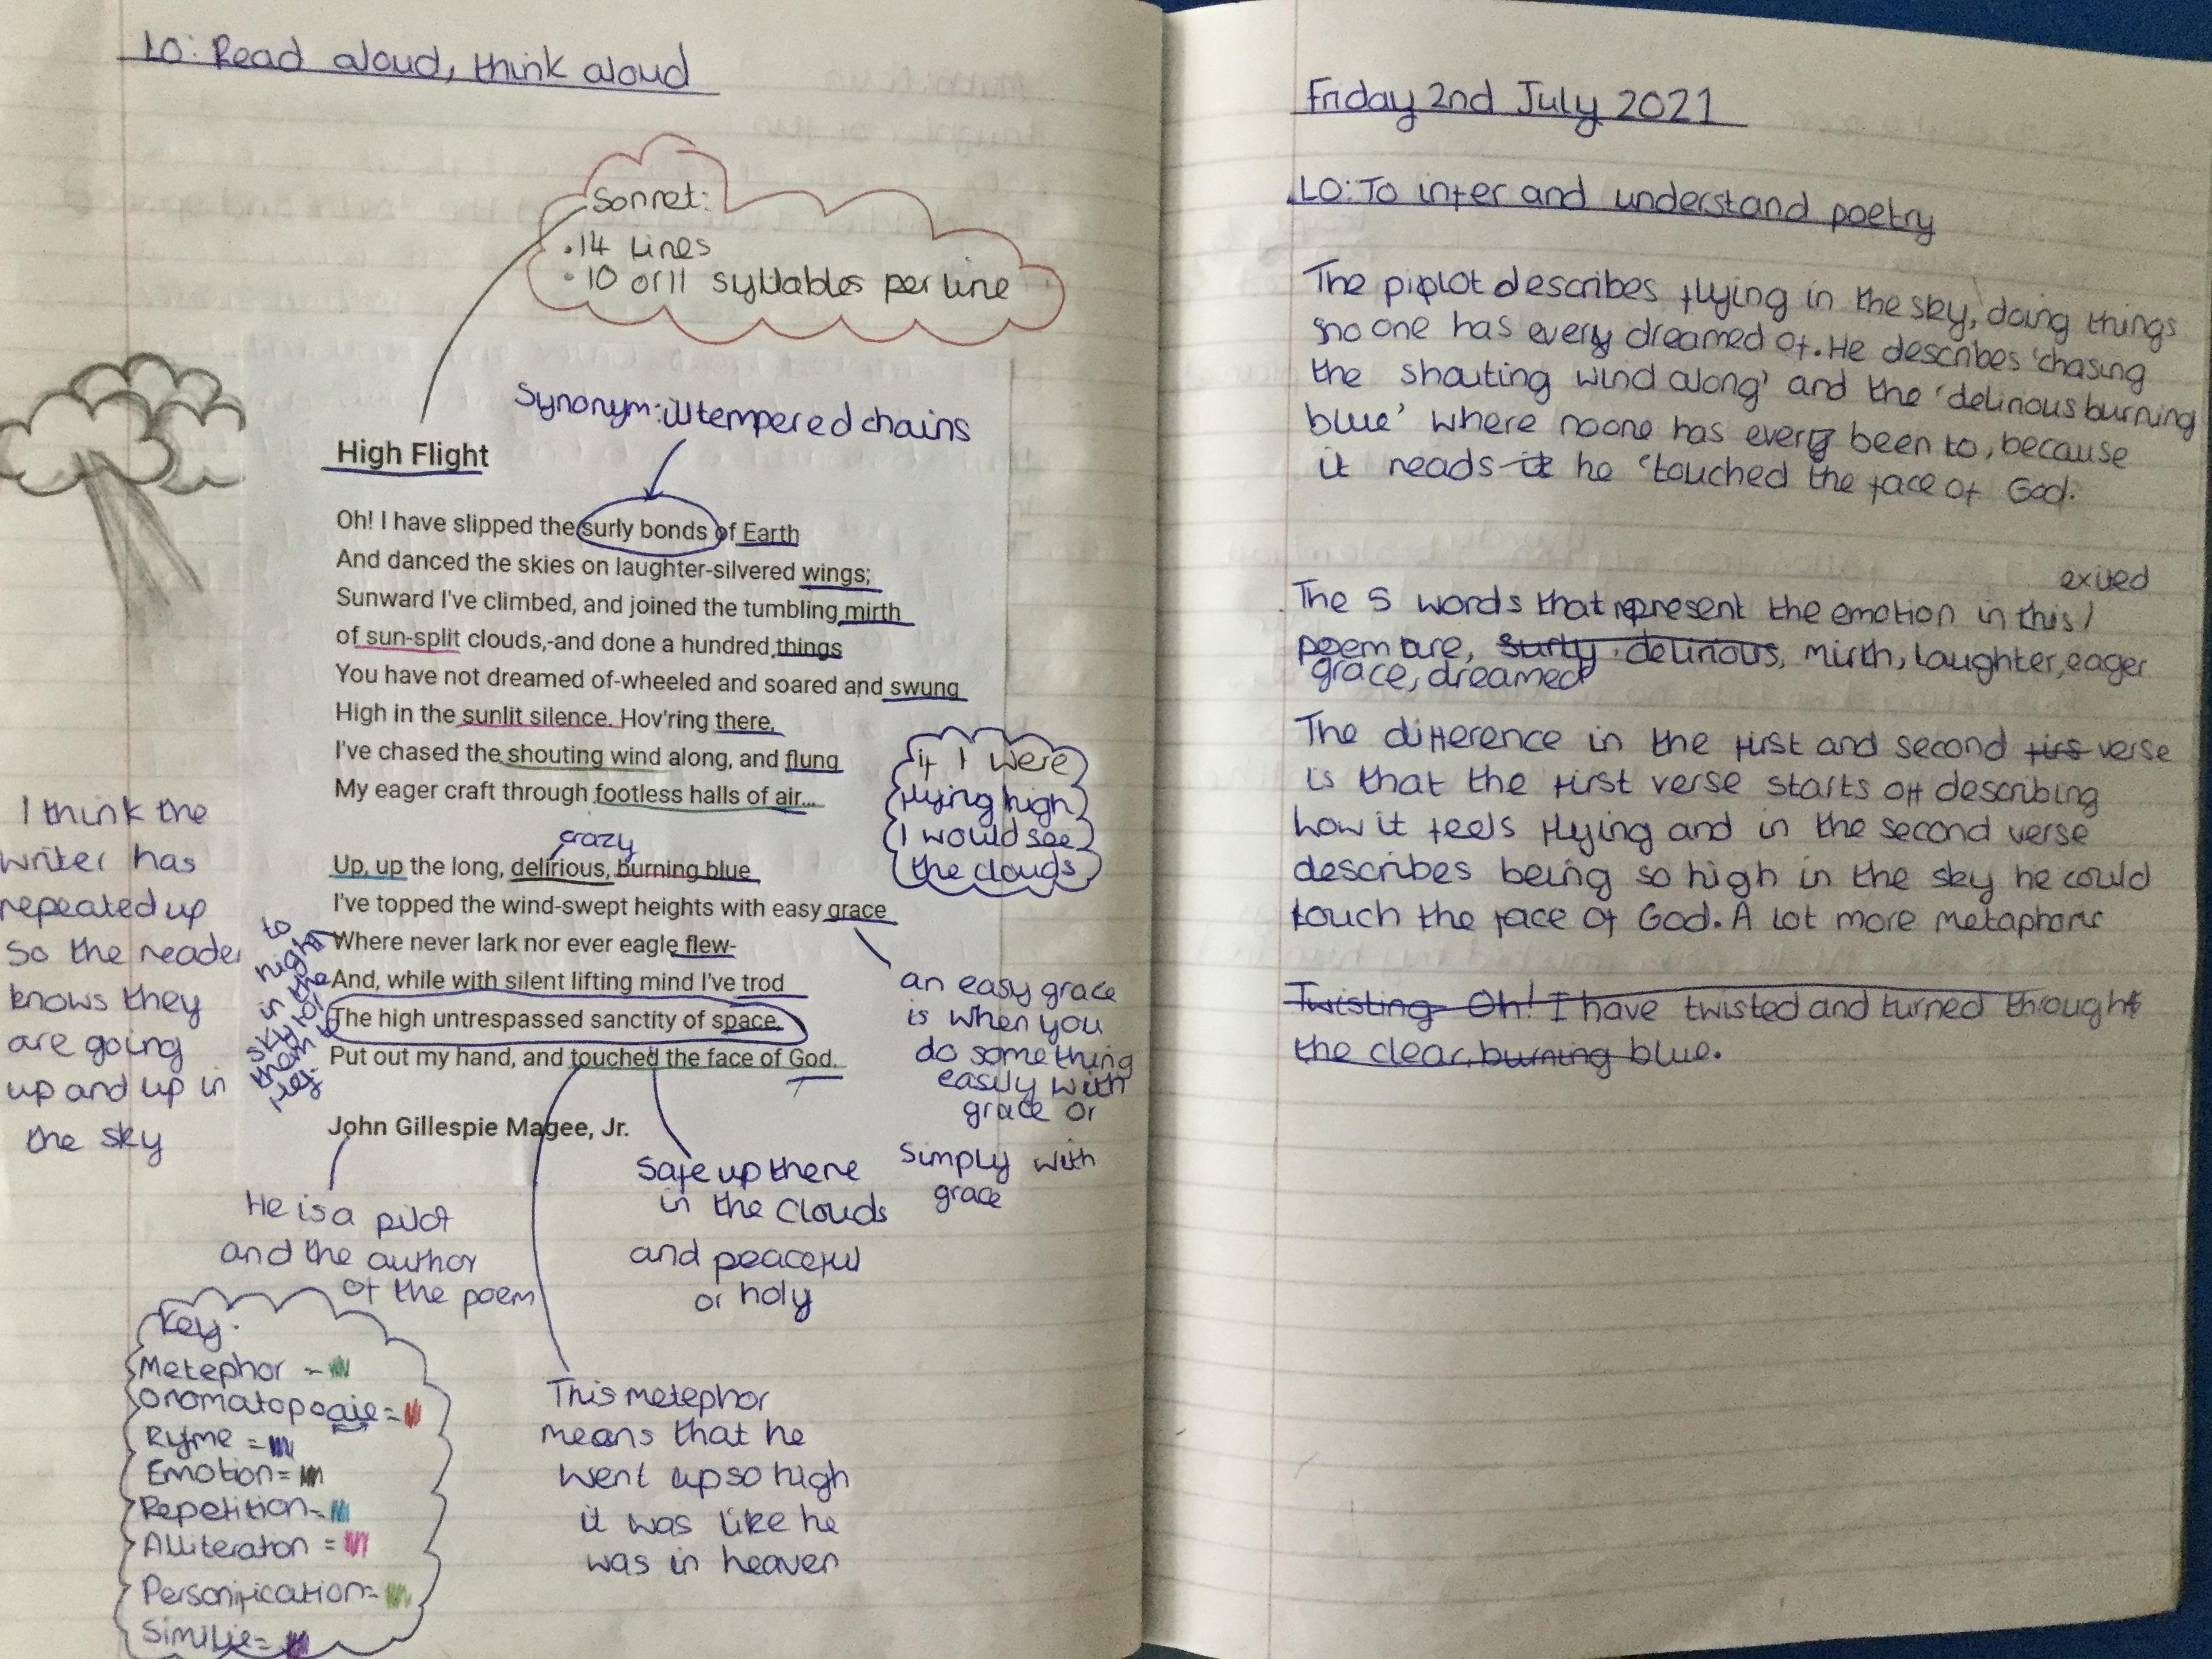 LO: Read aloud, think aloud
Sonnet:
• 14 Lines
• 10 or 11 syllables per line
Synonym: illtempered chains
High Flight
Oh! I have slipped the surly bonds of Earth
And danced the skies on laughter-silvered wings;
Sunward I've climbed, and joined the tumbling mirth
of sun-split clouds,-and done a hundred things
You have not dreamed of-wheeled and soared and swung
High in the sunlit silence. Hov'ring there,
I've chased the shouting wind along, and flung
My eager craft through footless halls of air...
if I were
flying high
I would see
the clouds
crazy
Up, up the long, delirious, burning blue
I've topped the wind-swept heights with easy grace
Where never lark nor ever eagle flew-
And, while with silent lifting mind I've trod
The high untrespassed sanctity of space,
Put out my hand, and touched the face of God.
John Gillespie Magee, Jr.
I think the
writer has
repeated up
So the reader
knows they
are going
up and up in
the sky
to
high
in the
sky for
them
an easy grace
is when you
do something
easily with
grace or
simply with
grace
He is a pilot
and the author
of the poem
Safe up there
in the clouds
and peaceful
or holy
This metephor
means that he
went up so high
it was like he
was in heaven
Key:
Metephor -
Onomatopoaie =
Ryme =
Emotion =
Repetition -
Alliteraton =
Personification =
Similie =
Friday 2nd July 2021
LO: To infer and understand poetry
The piplot describes flying in the sky, doing things
no one has every dreamed of. He describes 'chasing
the shouting wind along' and the 'delirious burning
blue' where noone has ever been to, because
it reads it he 'touched the face of God.
exited
The 5 words that represent the emotion in this /
poem are, surly, delirious, mirth, laughter, eager
grace, dreamed
The difference in the first and second firs verse
is that the first verse starts off describing
how it feels flying and in the second verse
describes being so high in the sky he could
touch the face of God. A lot more metaphors
Twisting Oh! I have twisted and turned throught
the clear, burning blue.